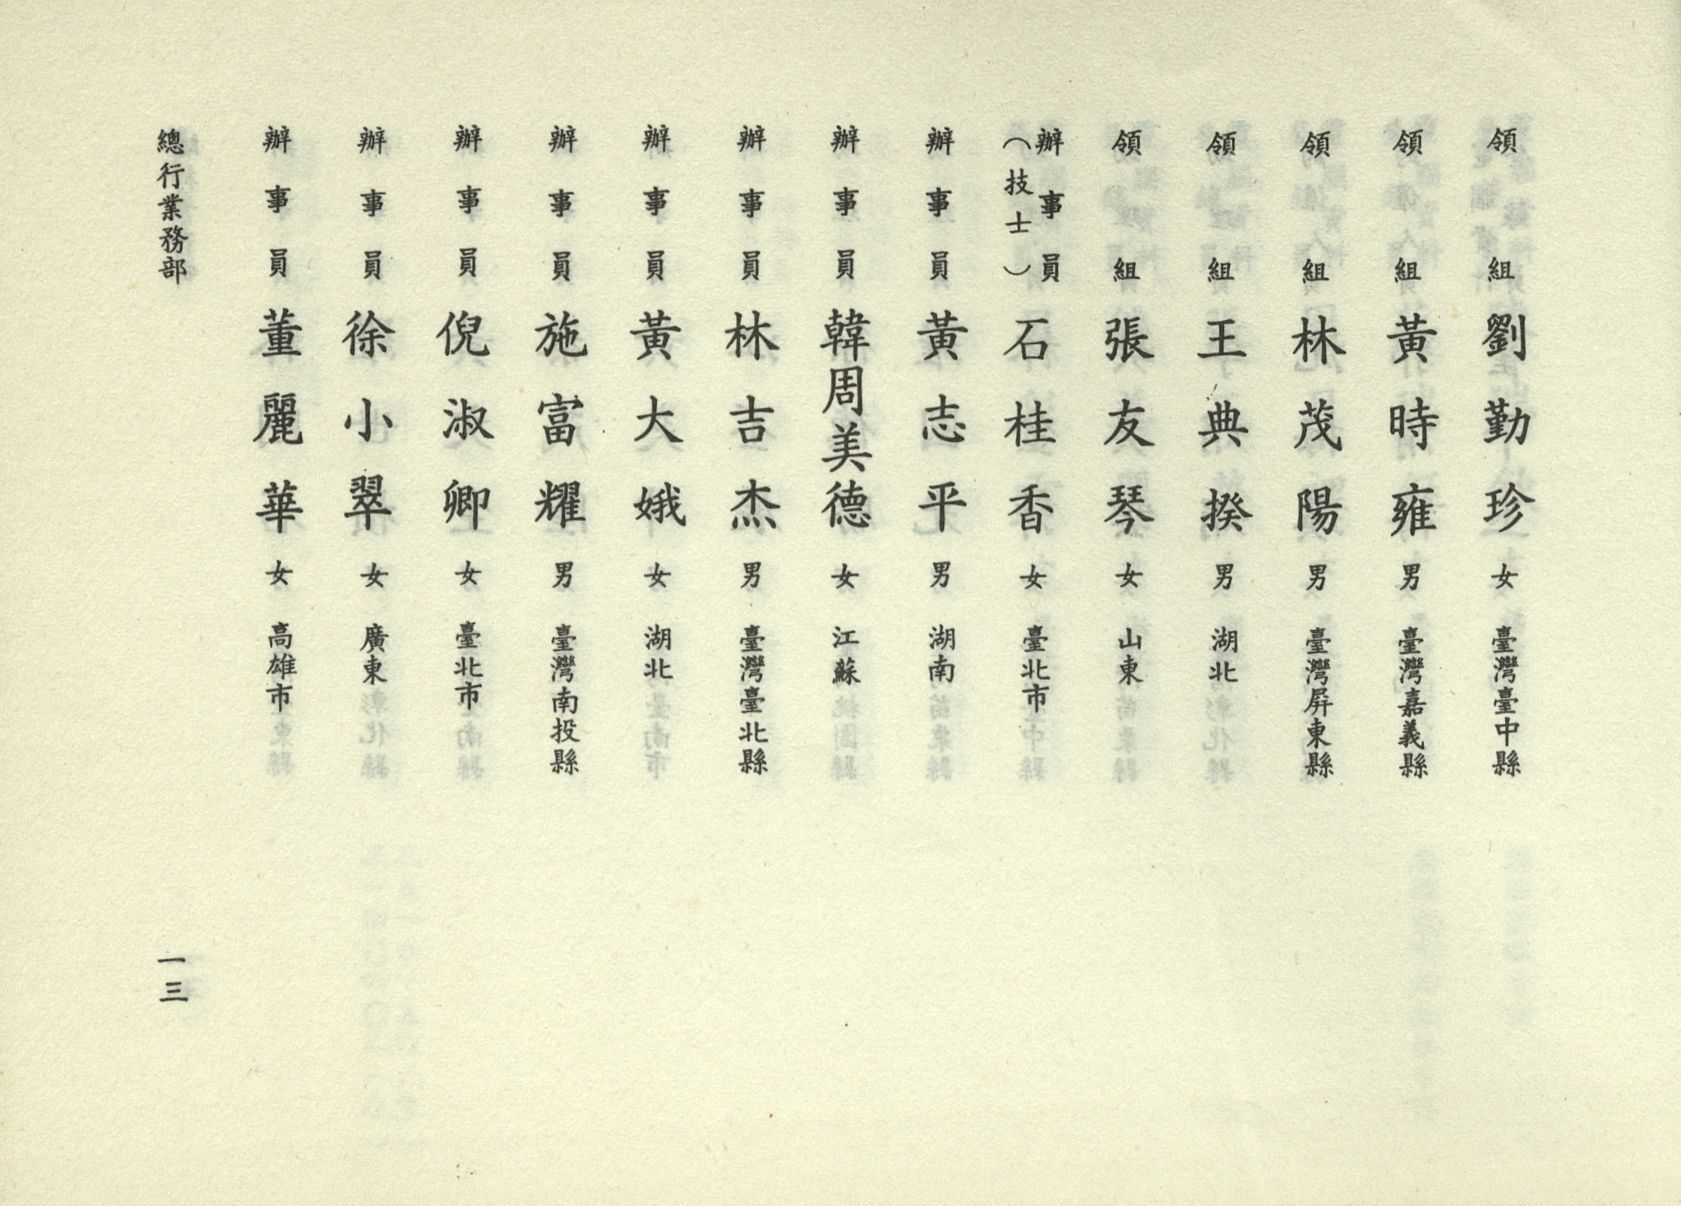 領組 劉勤珍 女 臺灣臺中縣
領組 黃時雍 男 臺灣嘉義縣
領組 林茂陽 男 臺灣屏東縣
領組 王典揆 男 湖北
領組 張友琴 女 山東
辦事員(技士) 石桂香 女 臺北市
辦事員 黃志平 男 湖南
辦事員 韓周美德 女 江蘇
辦事員 林吉杰 男 臺灣臺北縣
辦事員 黃大娥 女 湖北
辦事員 施富耀 男 臺灣南投縣
辦事員 倪淑卿 女 臺北市
辦事員 徐小翠 女 廣東
辦事員 董麗華 女 高雄市
總行業務部 一三